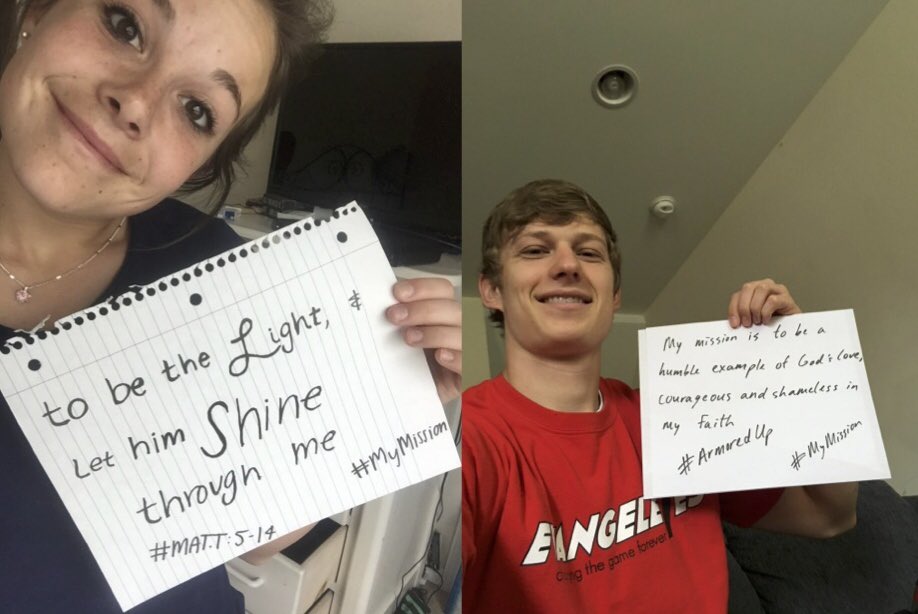 to be the Light, &
Let him Shine
through me
#MyMission
#MATT:5-14
My mission is to be a
humble example of God's love,
courageous and shameless in
my faith
#ArmoredUp
#MyMission
the game forever